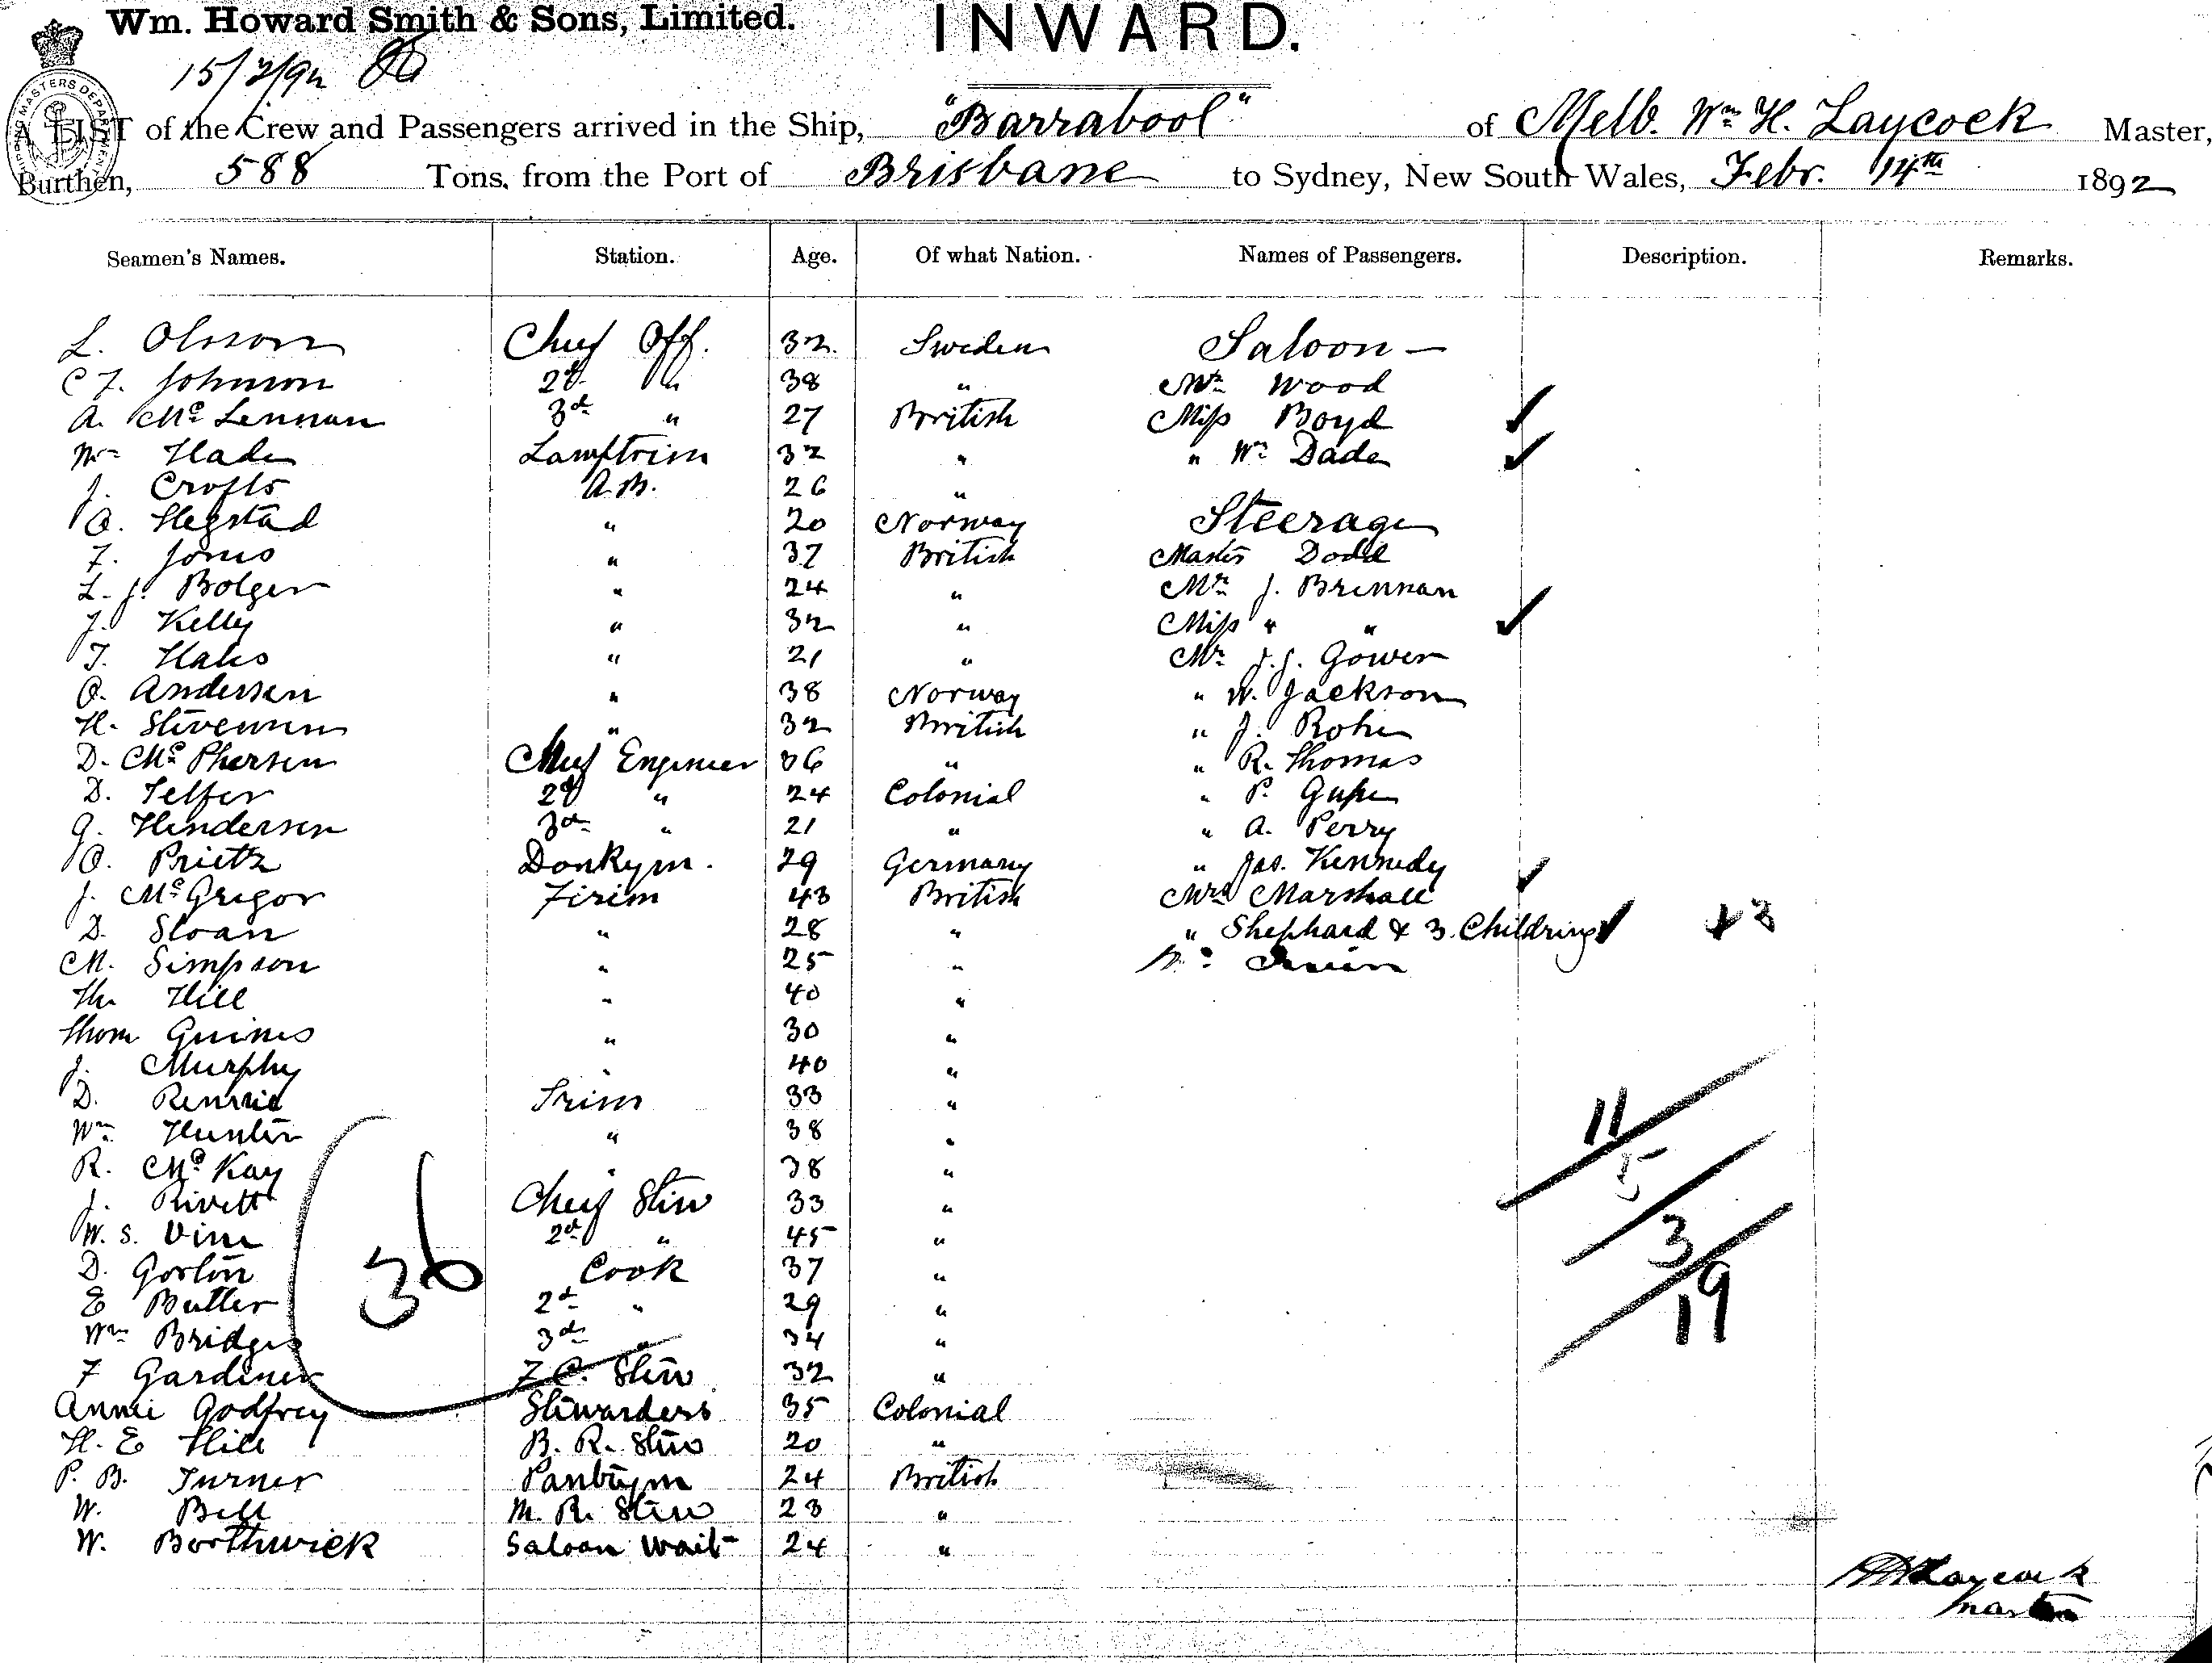 Wm. Howard Smith & Sons, Limited.
INWARD.
15/2/92
A LIST of the Crew and Passengers arrived in the Ship, "Barrabool" of Melb. Wm H. Laycock Master,
Burthen, 588 Tons, from the Port of Brisbane to Sydney, New South Wales, Febr. 14th 1892
Seamen's Names. Station. Age. Of what Nation. Names of Passengers. Description. Remarks.
L. Olsson Chief Off. 32 Sweden Saloon —
C F. Johnson 2d " 38 " Mr Wood
A. McLennan 3d " 27 British Miss Boyd ✓
Wm Hade Lamptrim 32 " " Wm Dade ✓
J. Crofts A.B. 26 "
O. Hegstad " 20 Norway Steerage
F. Jones " 37 British Master Dodd
L. J. Bolger " 24 " Mr J. Brennan
J. Kelly " 32 " Miss " " ✓
T. Hales " 21 " Mr J.J. Gower
O. Andersen " 38 Norway " W. Jackson
H. Stevensen " 32 British " J.
D. McPhersen Chief Engineer 36 " " R. Thomas
D. Telfer 2d " 24 Colonial " P.
G. Hendersen 3d " 21 " " A. Perry
O. Prietz Donkym. 29 Germany " Jas. Kennedy
J. McGregor Firem 43 British Mrs Marshall ✓
D. Sloan " 28 " " Shephard & 3 Childring ✓ + 3
M. Simpson " 25 "
Th. Hill " 40 "
Thom Guines " 30 "
J. Murphy " 40 "
D. Rennie Trim 33 "
Wm Hunter " 38 "
R. McKay " 38 "
J. Rivett Chief Stew 33 "
W. S. Vine 2d " 45 "
D. Gorton Cook 37 "
E Butler 2d " 29 "
Wm Bridges 3d " 34 "
F Gardiner F.C. Stew 32 "
Annie Godfrey Stewardess 35 Colonial
H. E Hill B. R. Stew 20 "
P. B. Turner Pantrym 24 British
W. Bell M. R. Stew 23 "
W. Borthwick Saloon Wait 24 "
36
11
5
3
19
Laycock
Master